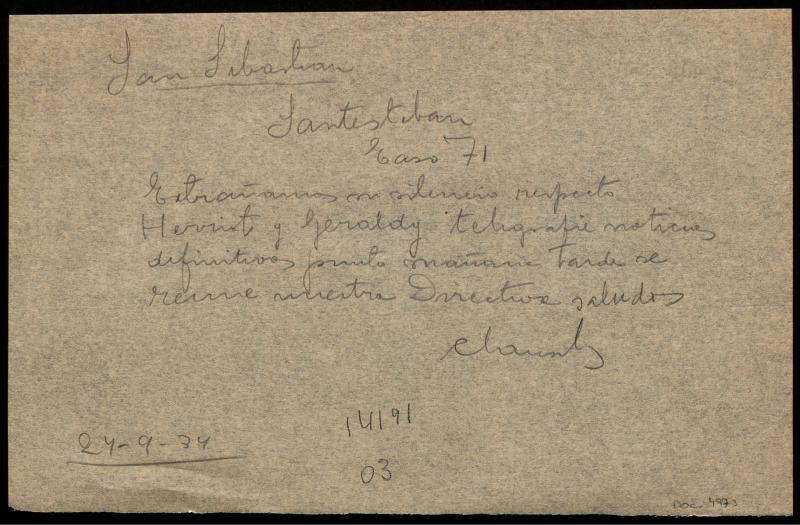 San Sebastian
Santesteban
Easo 71
Extrañamos su silencio respecto
Herriot y Geraldy telegrafie noticias
definitivas punto mañana tarde se
reune nuestra Directiva saludos
24-9-34
14191
03
Doc. 4973